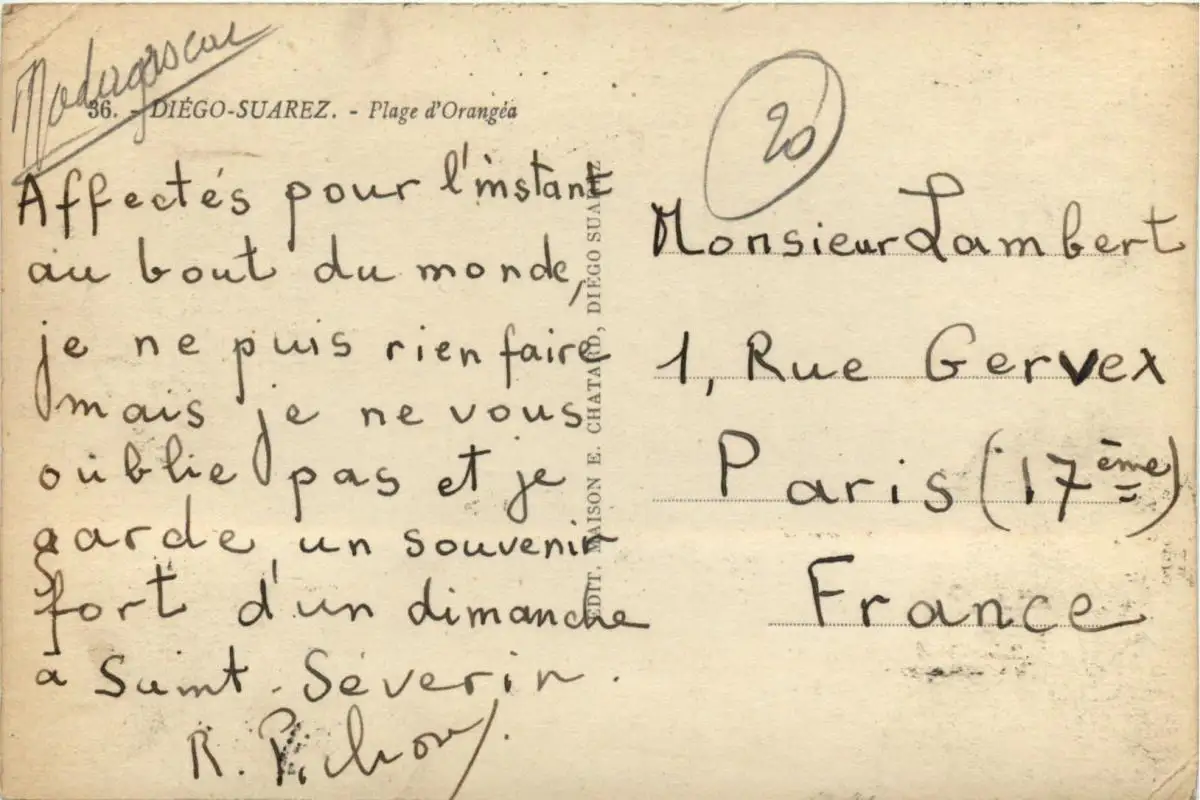 Madagascar
36. - DIÉGO-SUAREZ. - Plage d'Orangéa
Affectés pour l'instant
au bout du monde,
je ne puis rien faire
mais je ne vous
oublie pas et je
garde un souvenir
fort d'un dimanche
à Saint-Séverin.
R. Pichon
EDIT. MAISON E. CHATARD, DIEGO SUAREZ
20
Monsieur Lambert
1, Rue Gervex
Paris (17ème)
France